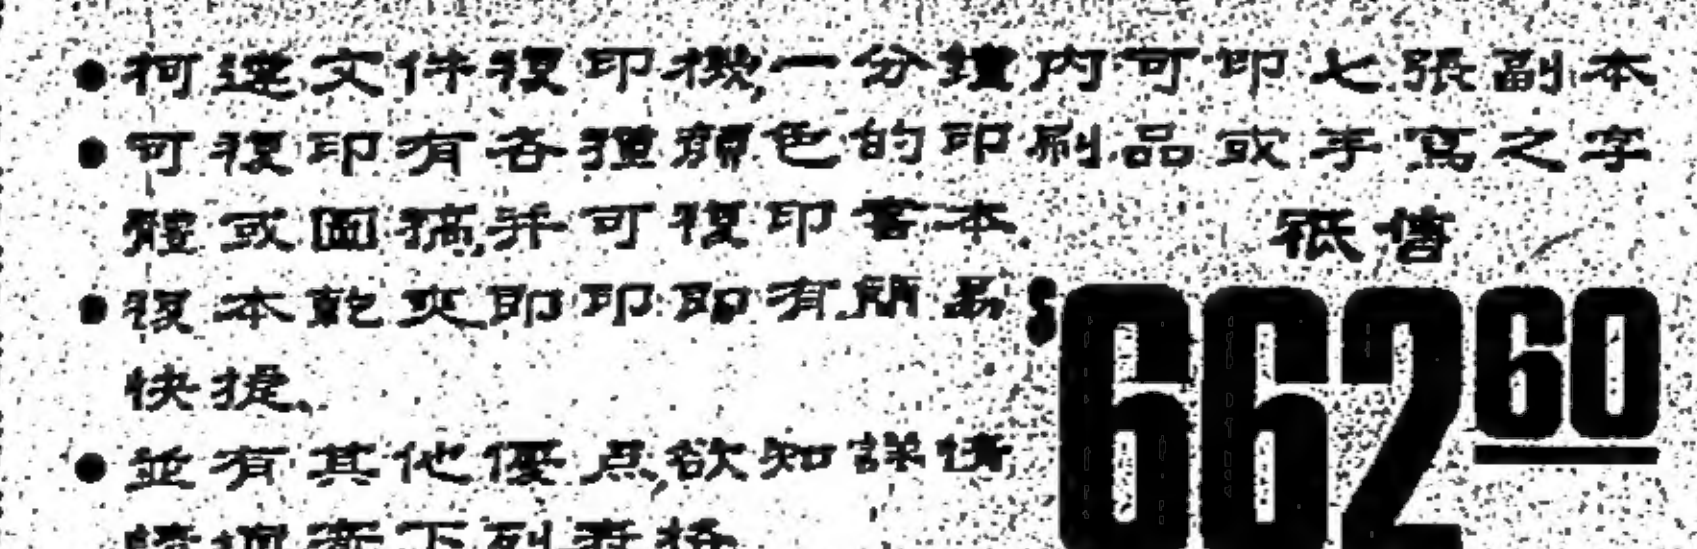 ●柯達文件複印機,一分鐘內可印七張副本
●可複印有各種顏色的印刷品或手寫之字
體或圖稿,并可複印書本.
祗售
$662.60
●複本乾爽即印即有簡易
快捷、
●並有其他優点,欲知詳情
下列